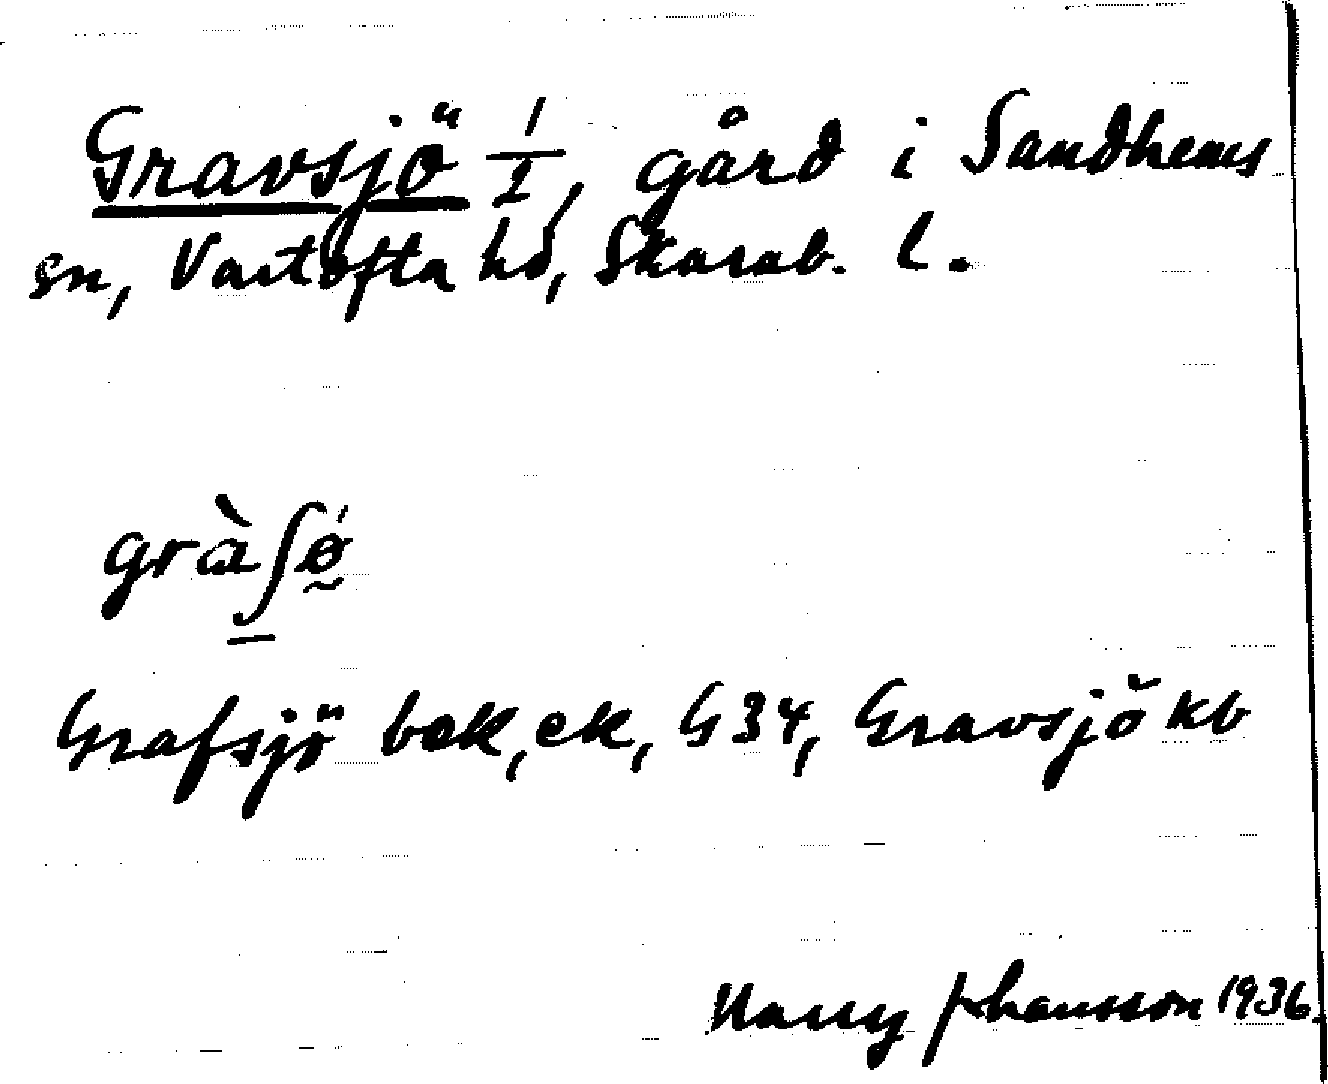 Gravsjö 1/1, gård i Sandhems
sn, Vartofta hd, Skarab. l.
gràʃǿ̰
Grafsjö bek, ek, G 34, Gravsjö kb
Harry Johansson 1936.